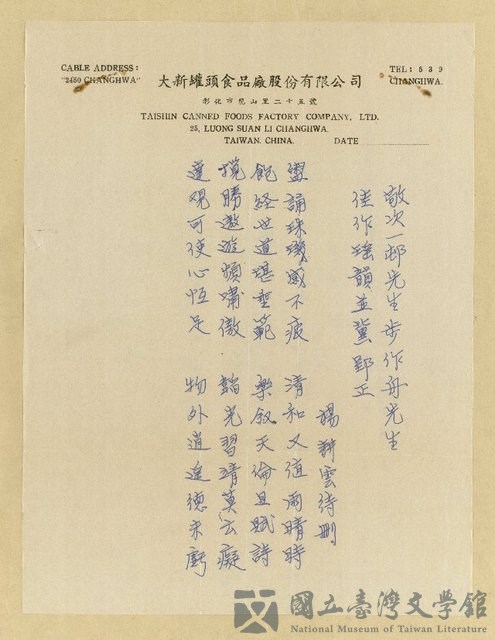 CABLE ADDRESS:
"2480 CHANGHWA"
TEL: 539
CHANGHWA.
大新罐頭食品廠股份有限公司
彰化市龍山里二十五號
TAISHIN CANNED FOODS FACTORY COMPANY, LTD.
25, LUONG SUAN LI CHANGHWA.
TAIWAN, CHINA.
DATE
敬次一邨先生步作舟先生
佳作瑤韻並冀郢正
楊耕雲待刪
盥誦珠璣感不疲 清和又值雨晴時
飽經世道堪垂範 樂敘天倫且賦詩
攬勝遨遊頻嘯傲 韜光習靖莫云癡
達觀可使心恆足 物外逍遙德未虧
國立臺灣文學館
National Museum of Taiwan Literature